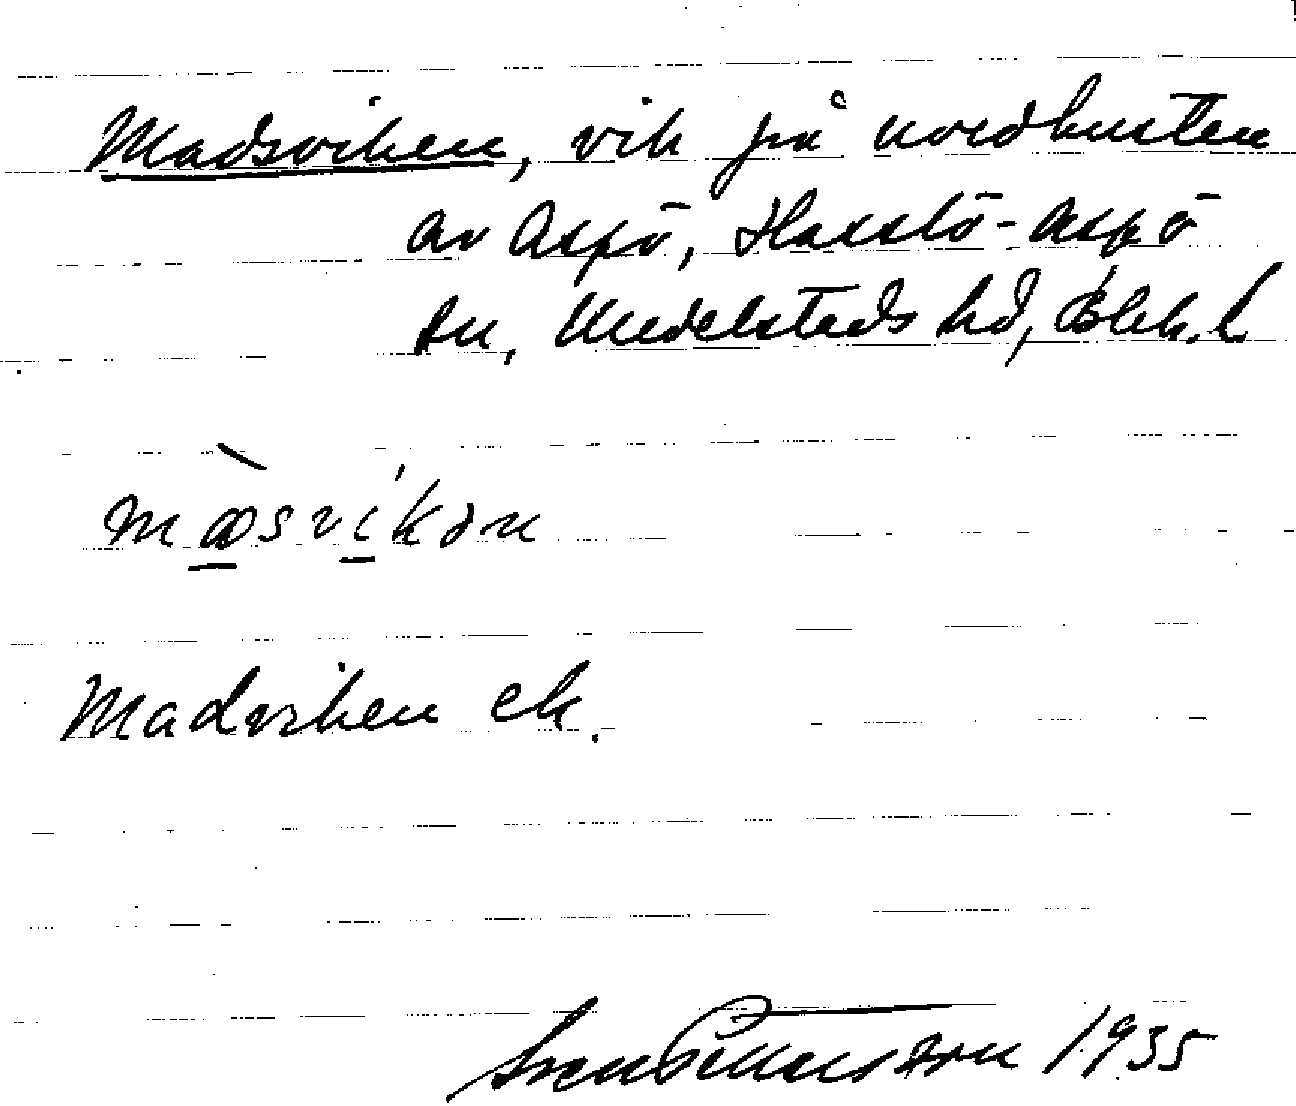 Madsviken, vik på nordkusten
av Aspö, Hasslö-Aspö
sn, Medelsteds hd, Blek. l
mɑsvikən
Madviken ek.
Sven Petersson 1935